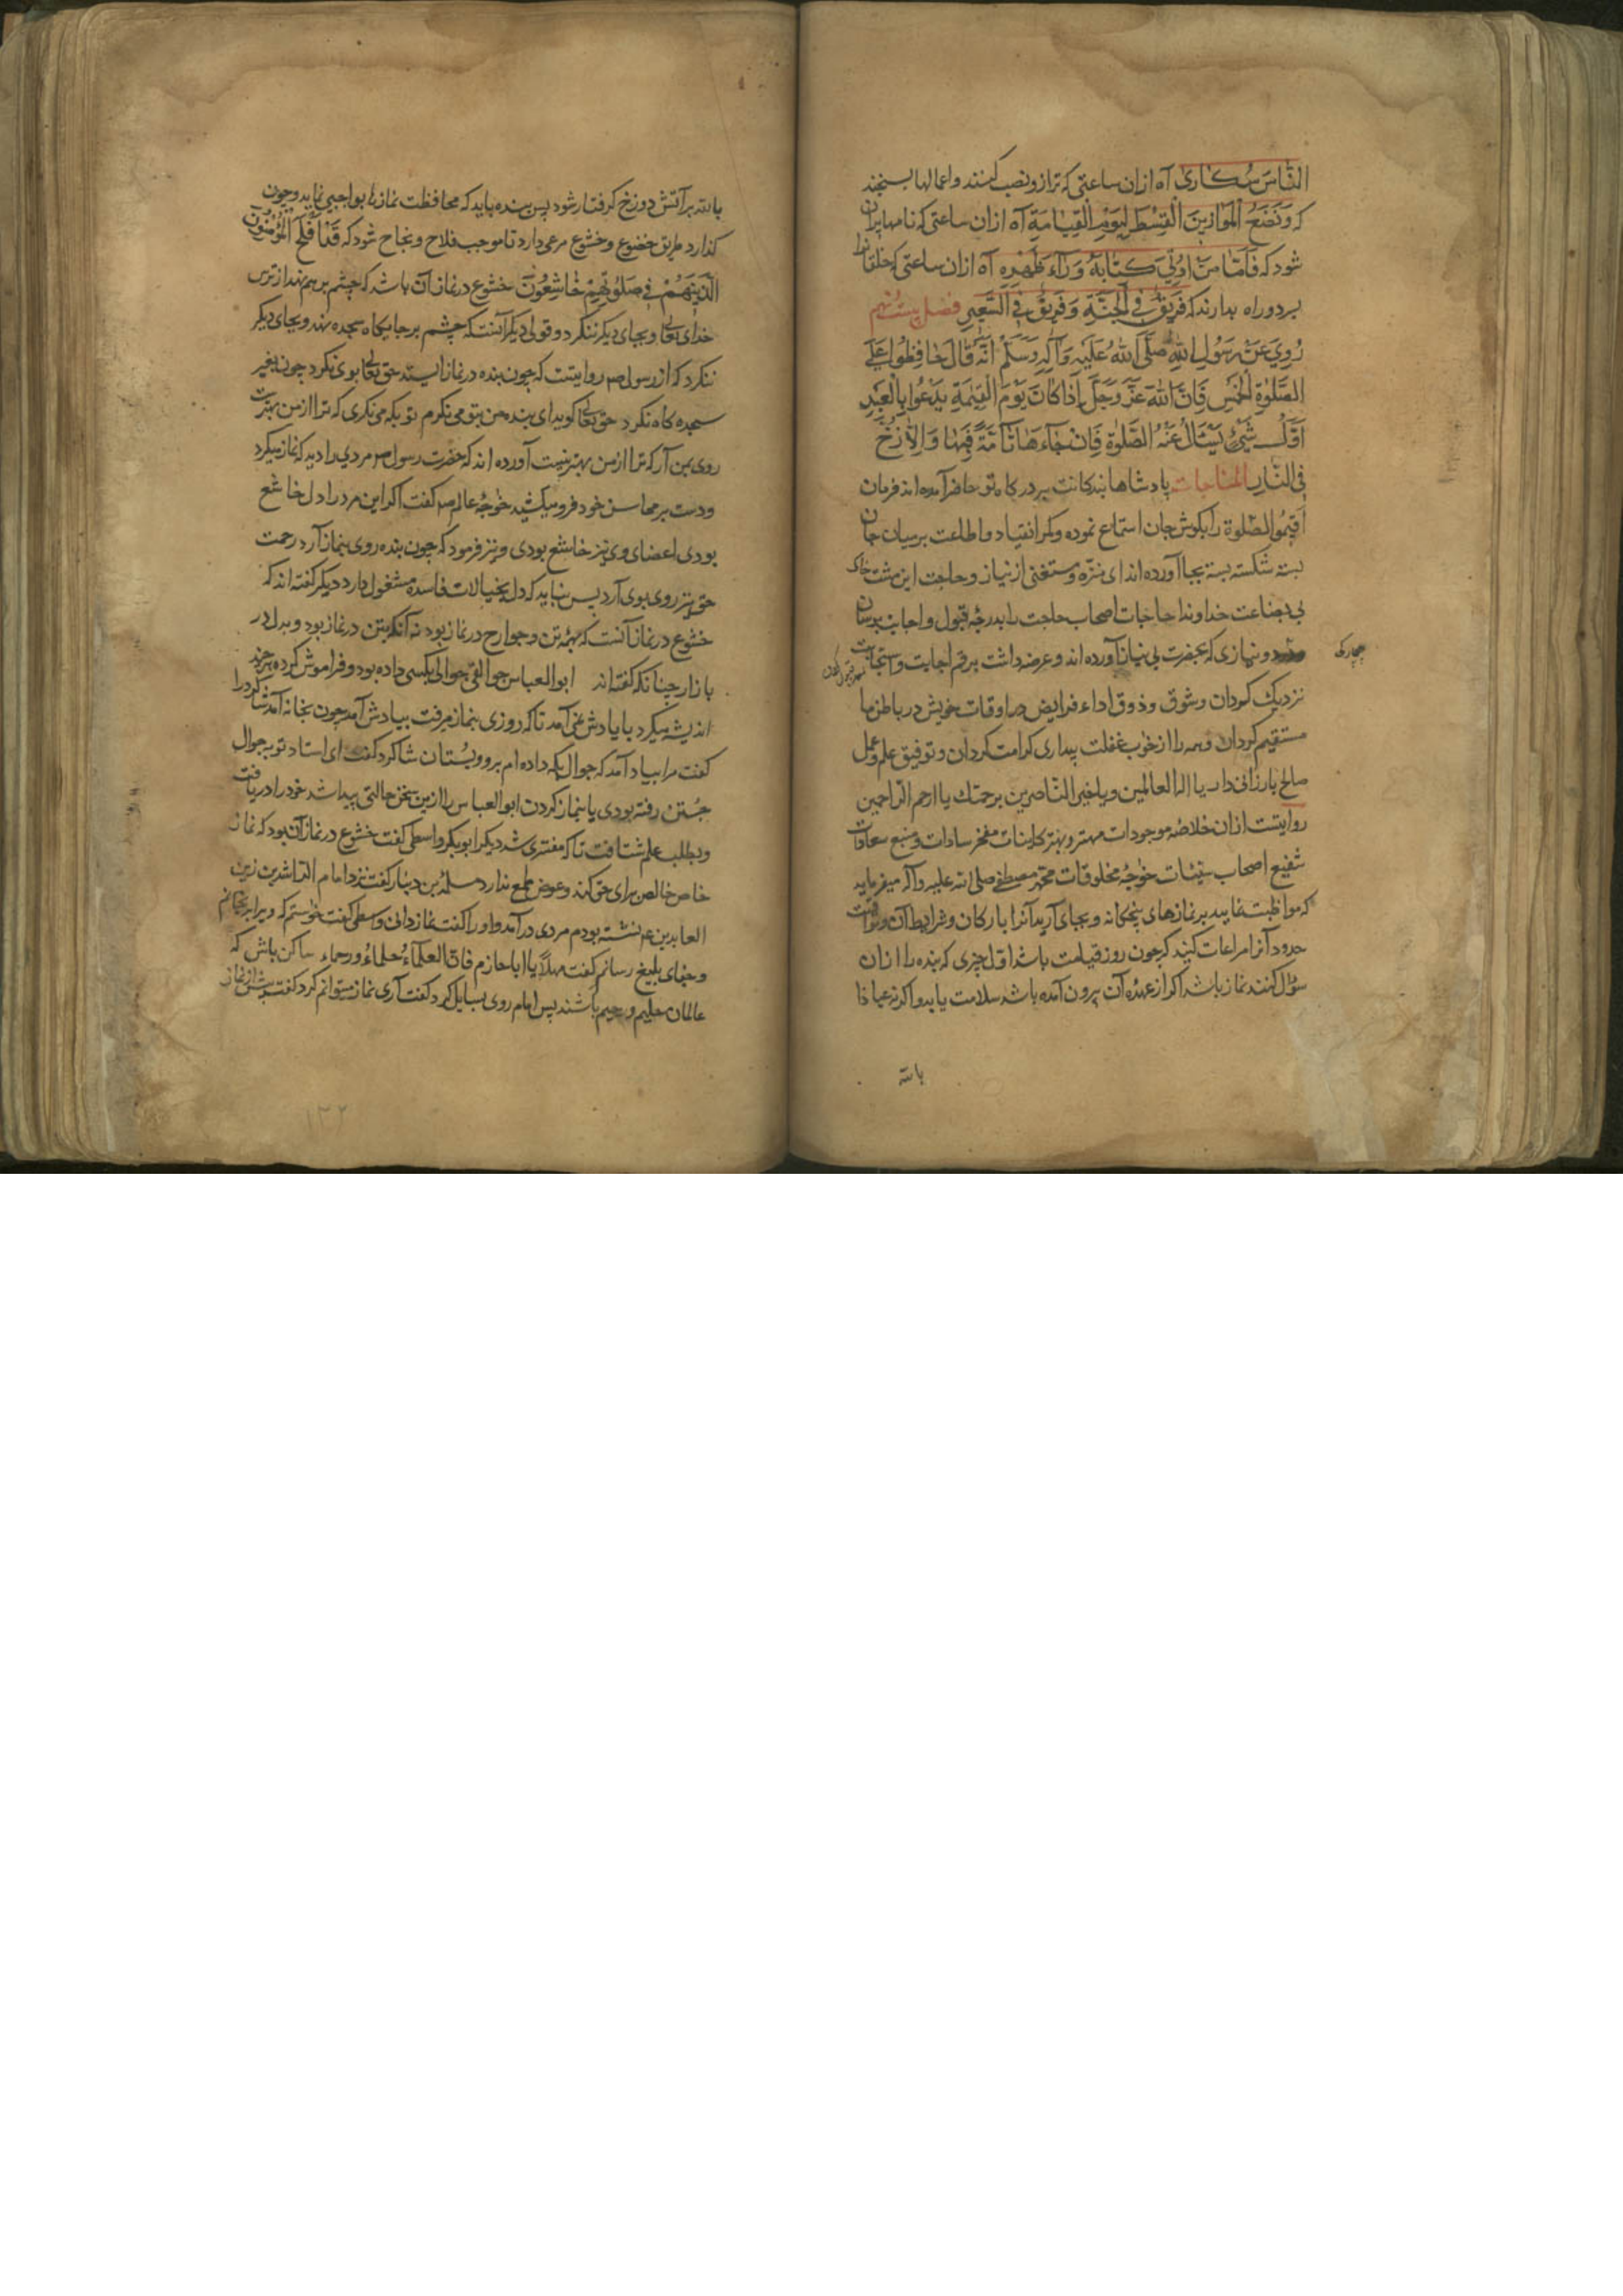 الناس سکاری آه ازان ساعتی که ترازو نصب کنند و اعمالها بسنجند
که وَنَضَعُ الْمَوَازِينَ الْقِسْطَ لِيَوْمِ الْقِيَامَةِ آه ازان ساعتی که نامها پران
شود که فَاَمَّا مَنْ اُوتِيَ كِتَابَهُ وَرَاءَ ظَهْرِهِ آه ازان ساعتی که خلقانرا
بر دو راه بدارند که فَرِيقٌ فِي الْجَنَّةِ وَفَرِيقٌ فِي السَّعِيرِ فصل بیست نهم
رُوِيَ عَنْ رَسُولِ اللهِ صَلَّى اللهُ عَلَيْهِ وَآلِهِ وَسَلَّمْ اَنَّهُ قَالَ حَافِظُوا عَلَى
الصَّلٰوةِ الْخَمْسِ فَاِنَّ اللهَ عَزَّ وَجَلَّ اِذَا كَانَ يَوْمَ الْقِيٰمَةِ يَدْعُوا بِالْعَبْدِ
اَوَّلُ شَيْءٍ يَسْئَالُ عَنْهُ الصَّلٰوةِ فَاِنْ جَاءَ هَا تَآمَّةً فَبِهَا وَاِلَّا زُخَّ
فِي النَّارِ المناجات پادشاها بندکانت بر درکاه تو حاضر آمده اند فرمان
اَقِيمُوا الصَّلٰوة را بکوش جان استماع نموده و کمر انقیاد و اطاعت بر میان جان
بسته شکسته بسته بجا آورده اند ای منزه و مستغنی از نیاز و حاجت این مشت خاک
بی بضاعت خداوندا حاجات اصحاب حاجت را بدرجه قبول و اجابت برسان
و نیازی که بحضرت بی نیاز آورده اند و عرضه داشت برقم اجابت و استجابت
بیچارکی
نزدیک کردان و شوق و ذوق اداء فرایض در اوقات خویش در باطن ما
مستقیم کردان و همه را از خواب غفلت بیداری کرامت کردان و توفیق علم و عمل
صالح بارزانی دار یا اله العالمین و یا خیر الناصرین برحمتك یا ارحم الراحمین
روایتست ازان خلاصه موجودات مهتر و بهتر کاینات مفخر سادات و منبع سعادات
شفیع اصحاب سیئات خواجه مخلوقات محمد مصطفی صلی الله علیه و آله میفرماید
که مواظبت نمایید بر نمازهای پنجکانه و بجای آرید آنرا بارکان و شرایط آن و مواقیت
حدود آنرا مراعات کنید که چون روز قیامت باشد اول چیزی که بنده را ازان
سؤال کنند نماز باشد اکر از عهده آن بیرون آمده باشد سلامت یابد و اکر نه عیاذا
بالله
بالله بر آتش دوزخ کرفتار شود پس بنده باید که محافظت نمازها بواجبی نماید و چون
کذارد طریق خضوع و خشوع مرعی دارد تا موجب فلاح و نجاح شود که قَدْ اَفْلَحَ الْمُؤْمِنُونَ
الَّذِينَ هُمْ فِي صَلٰوتِهِمْ خَاشِعُونَ خشوع در نماز آن باشد که چشم بر هم نهد از ترس
خدای تعالی و بجای دیکر ننکرد و قولی دیکر آنست که چشم بر جایکاه سجده نهد و بجای دیکر
ننکرد که از رسول ص روایتست که چون بنده در نماز ایستد حق تعالی بوی نکرد چون بغیر
سجده کاه نکرد حق تعالی کوید ای بنده من بتو می نکرم تو بکه می نکری که ترا از من بهترست
روی بمن آر که ترا از من بهتر نیست آورده اند که حضرت رسول ص مردی را دید که نماز میکرد
و دست بر محاسن خود فرو میکشید خواجه عالم ص کفت اکر این مرد را دل خاشع
بودی اعضای وی نیز خاشع بودی و نیز فرمود که چون بنده روی بنماز آرد رحمت
حق نیز روی بوی آرد پس نباید که دل بخیالات فاسده مشغول دارد دیکر کفته اند که
خشوع در نماز آنست که بهمه تن و جوارح در نماز بود نه آنکه بتن در نماز بود و بدل در
بازار چنانکه کفته اند ابوالعباس جوالقی جوالی بکسی داده بود و فراموش کرده هرچند
اندیشه میکرد با یادش نمی آمد تا که روزی بنماز میرفت بیادش آمد چون بخانه آمد شاکرد را
کفت مرا بیاد آمد که جوال بکه داده ام برو و بستان شاکرد کفت ای استاد تو بجوال
جستن رفته بودی یا بنماز کردن ابوالعباس را ازین سخن حالتی پیدا شد خود را دریافت
و بطلب علم شتافت تا که مفتری شد دیکر ابوبکر واسطی کفت خشوع در نماز آن بود که نماز
خاص خالص برای حق کند و عوض طمع ندارد سلمة بن دینار کفت نزد امام الراشدین زین
العابدین ع نشسته بودم مردی درآمد و او را کفت نماز دانی واسطی کفت خواستم که ویرا برنجانم
و جفای بلیغ رسانم کفت مهلاً یا ابا حازم فان العلماءُ حلماءُ و رحماء ساکن باش که
عالمان حلیم و رحیم باشند پس امام روی بسایل کرد کفت آری نماز میتوانم کرد کفت پیش از نماز
۱۲۲